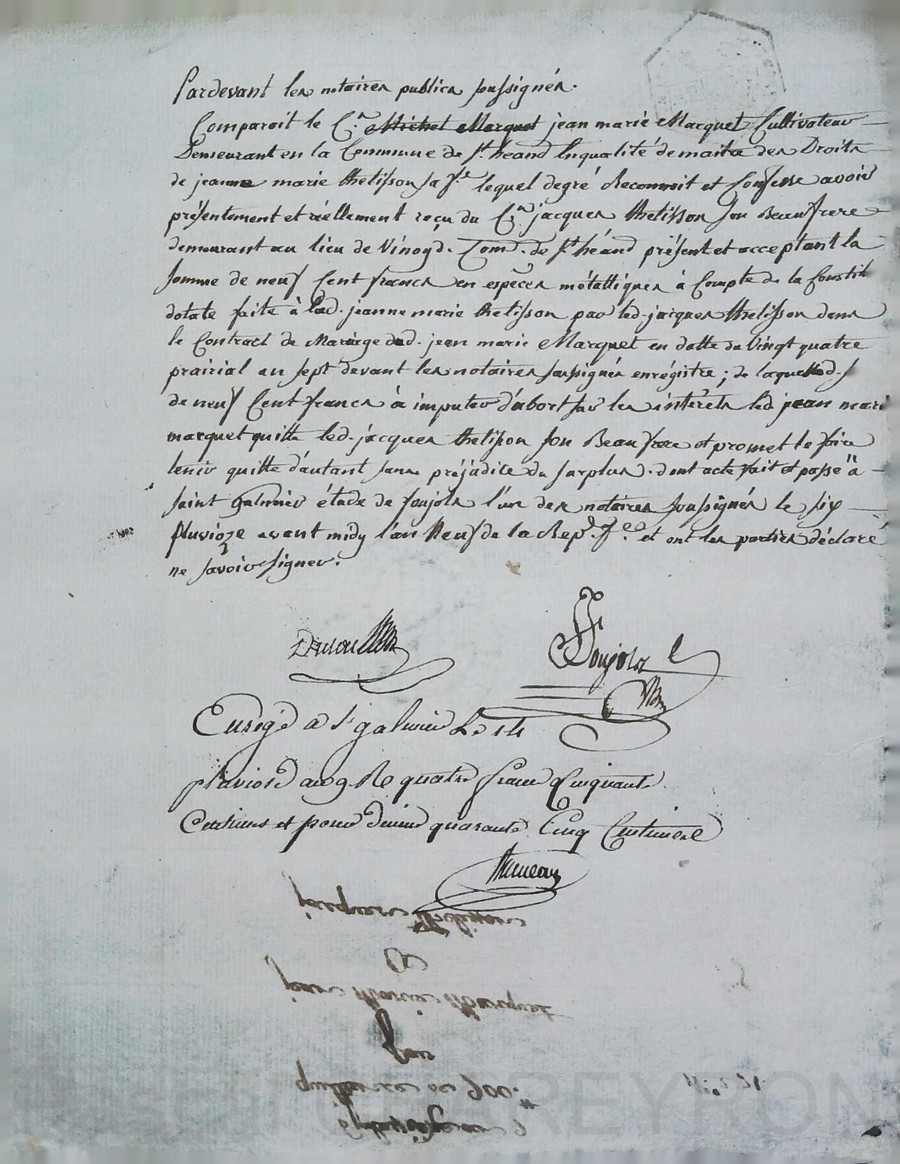 Pardevant les notaires publics soussignés.
Comparoit le C.en Michel Marquet jean marie Marquet Cultivateur
Demeurant en la Commune de St. héand Enqualité de maitre des Droits
de jeanne marie thelisson sa f.e lequel degré Reconnoit et Confesse avoir
présentement et réellement reçu du C.en jacques thelisson son Beaufrere
demeurant au lieu de Vinoyd. Com.e de St héand présent et acceptant la
somme de neuf Cent francs en espèces métalliques à Compte de la Constit
dotale faite à lad. jeanne marie thelisson par led. jacques thelisson dans
le Contract de Mariage dud. jean marie Marquet en datte du Vingt quatre
prairial an sept devant les notaires soussignés enrégistré; de laquelle d. s
de neuf Cent francs à imputer d'abort sur les intérèts led jean mari
marquet quitte led. jacques thelisson son Beaufrere et promet le faire
tenir quitte d'autant sans préjudice du surplus. dont acte fait et passé à
saint galmier étude de soujols l'un des notaires soussignés le six
pluvioze avant midy l'an Neuf de la Rep. f.e et ont les parties déclaré
ne savoir signer.
Soujols
Enregé a St galmier Le 14
pluviose an 9 R quatre franc Cinquante
Centimes et pour Dixime quarante Cinq Centimes
jacques thelisson
A
jean Marie Marquet
pour
quittance de 900.
Pascal CHAREYRON